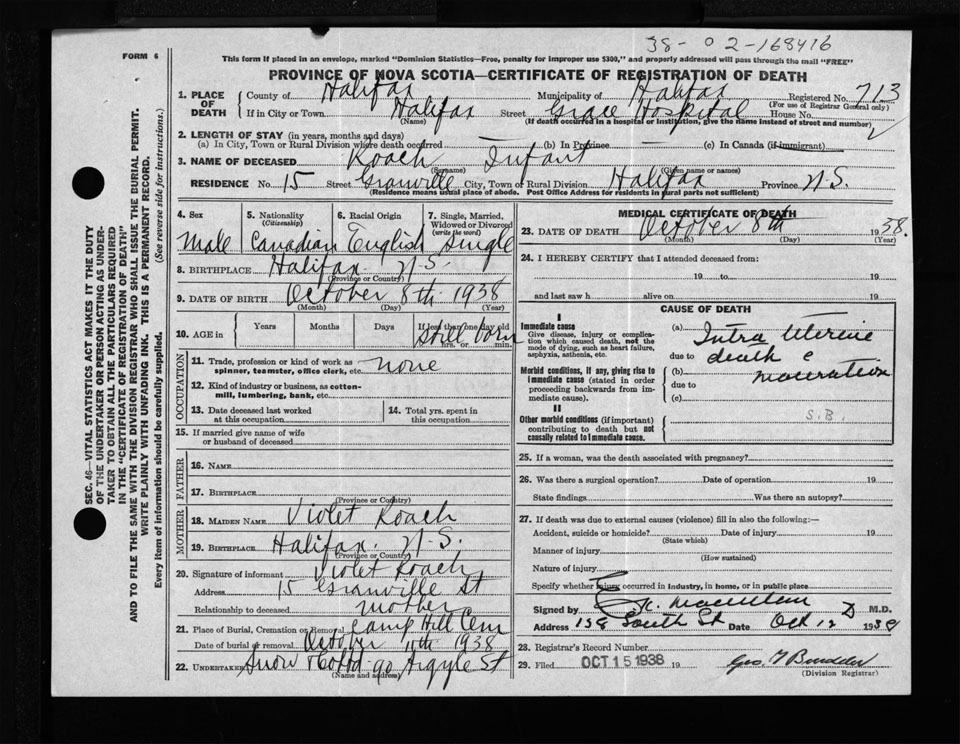 38- 02-168416
FORM 6
This form if placed in an envelope, marked "Dominion Statistics—Free, penalty for improper use $300," and properly addressed will pass through the mail "FREE"
PROVINCE OF NOVA SCOTIA—CERTIFICATE OF REGISTRATION OF DEATH
1. PLACE OF DEATH County of Halifax Municipality of Halifax Registered No. 713
(For use of Registrar General only)
If in City or Town Halifax Street Grace Hospital House No.
(Name) (If death occurred in a hospital or institution, give the name instead of street and number)
2. LENGTH OF STAY (in years, months and days)
(a) In City, Town or Rural Division where death occurred (b) In Province — (c) In Canada (if immigrant)
3. NAME OF DECEASED Roach Infant
(Surname) (Given name or names)
RESIDENCE No. 15 Street Granville City, Town or Rural Division Halifax Province N.S.
(Residence means usual place of abode. Post Office Address for residents in rural parts not sufficient)
4. Sex Male
5. Nationality (Citizenship) Canadian
6. Racial Origin English
7. Single, Married, Widowed or Divorced (write the word) Single
8. BIRTHPLACE Halifax N.S.
(Province or Country)
9. DATE OF BIRTH October 8th 1938
(Month) (Day) (Year)
10. AGE in Years Months Days If less than one day old hrs. or min.
Still born
OCCUPATION
11. Trade, profession or kind of work as spinner, teamster, office clerk, etc. none
12. Kind of industry or business, as cotton-mill, lumbering, bank, etc.
13. Date deceased last worked at this occupation
14. Total yrs. spent in this occupation
15. If married give name of wife or husband of deceased
FATHER
16. NAME
17. BIRTHPLACE
(Province or Country)
MOTHER
18. MAIDEN NAME Violet Roach
19. BIRTHPLACE Halifax. N.S.
(Province or Country)
20. Signature of informant Violet Roach
Address 15 Granville St
Relationship to deceased mother
21. Place of Burial, Cremation or Removal Camp Hill Cem
Date of burial or removal October 11th 1938
22. UNDERTAKER Snow & Co Ltd 90 Argyle St
(Name and address)
MEDICAL CERTIFICATE OF DEATH
23. DATE OF DEATH October 8th 1938.
(Month) (Day) (Year)
24. I HEREBY CERTIFY that I attended deceased from:
19 to 19
and last saw h alive on 19
CAUSE OF DEATH
I
Immediate cause
Give disease, injury or complication which caused death, not the mode of dying, such as heart failure, asphyxia, asthenia, etc.
(a) Intra Uterine
due to death c
Morbid conditions, if any, giving rise to immediate cause (stated in order proceeding backwards from immediate cause).
(b) maceration
due to
(c)
II
Other morbid conditions (if important) contributing to death but not causally related to immediate cause.
S.B.
25. If a woman, was the death associated with pregnancy?
26. Was there a surgical operation? Date of operation 19
State findings Was there an autopsy?
27. If death was due to external causes (violence) fill in also the following:—
Accident, suicide or homicide? Date of injury 19
(State which)
Manner of injury
(How sustained)
Nature of injury
Specify whether injury occurred in industry, in home, or in public place
Signed by M.D.
Address 158 South St Date Oct 12 1938
28. Registrar's Record Number
29. Filed OCT 15 1938 19
(Division Registrar)
SEC. 46—VITAL STATISTICS ACT MAKES IT THE DUTY
OF THE UNDERTAKER OR PERSON ACTING AS UNDER-
TAKER TO OBTAIN ALL THE PARTICULARS REQUIRED
IN THE "CERTIFICATE OF REGISTRATION OF DEATH"
AND TO FILE THE SAME WITH THE DIVISION REGISTRAR WHO SHALL ISSUE THE BURIAL PERMIT.
WRITE PLAINLY WITH UNFADING INK. THIS IS A PERMANENT RECORD.
Every item of information should be carefully supplied. (See reverse side for instructions.)